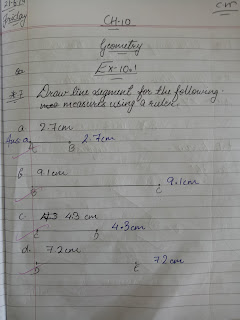 Friday
CH-10
Geometry
Ex-10.1
Q7. Draw line segment for the following
measures using a ruler.
a 2.7cm
Ans a. A B 2.7cm
b 9.1cm
B C 9.1cm
c. 4.3 cm
C D 4.3cm
d. 7.2 cm
D E 7.2cm